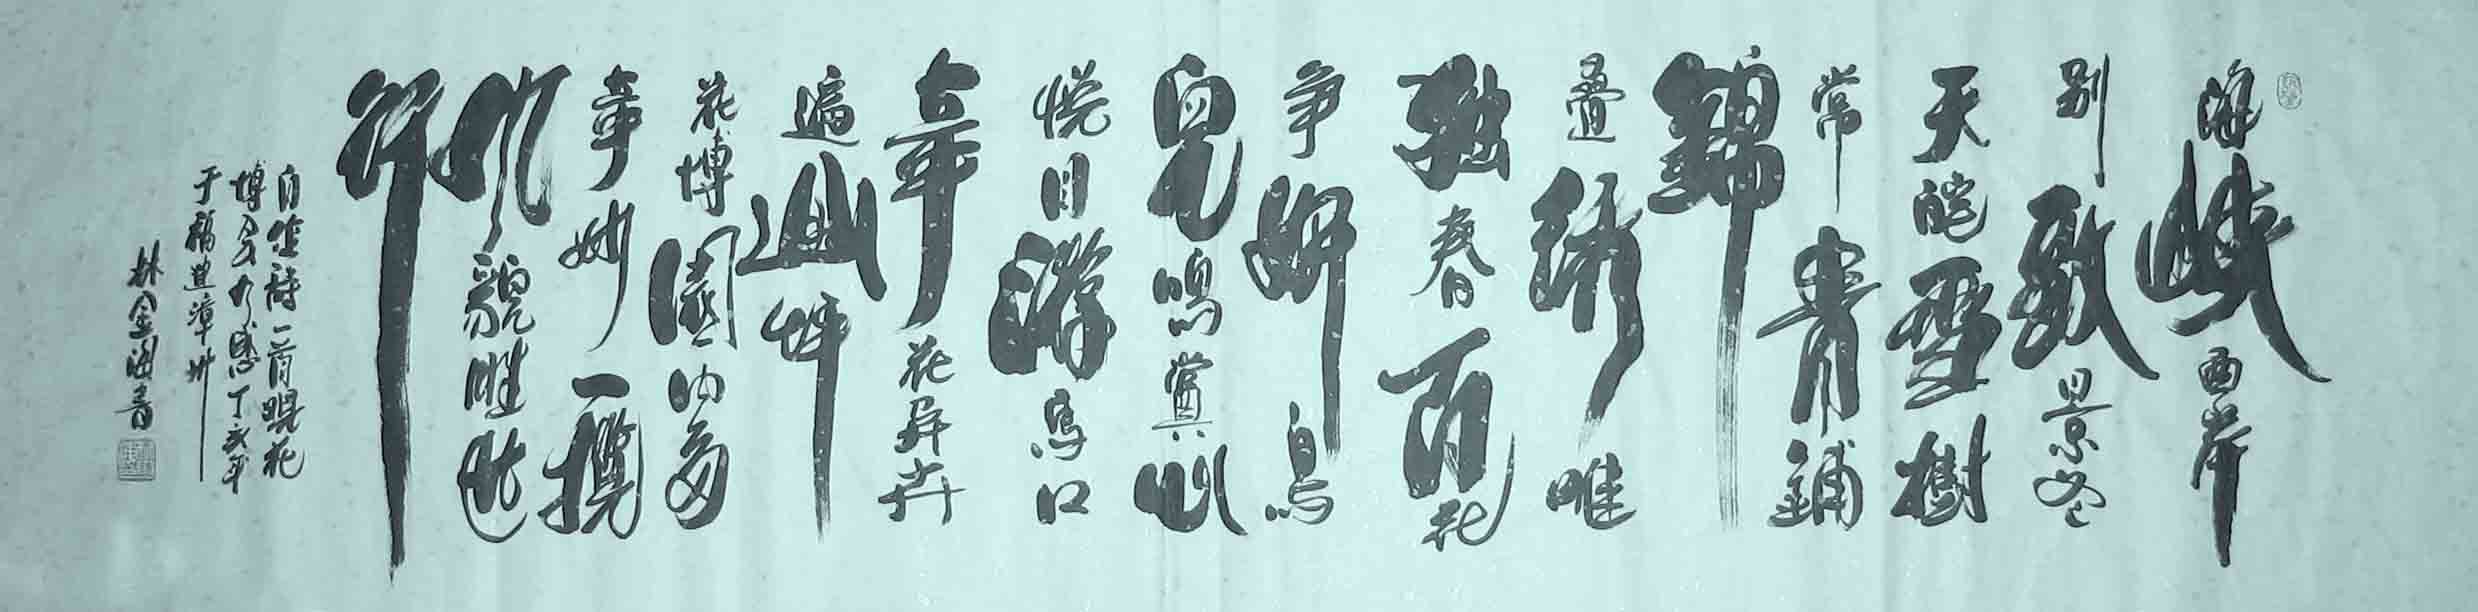 海峡西岸
别致景冬
天皑雪树
常青铺
锦
叠绣唯
独春百花
争妍鸟
儿鸣赏心
悦目游马口
奇花异卉
遍山坪
花博园内多
奇妙一揽
风貌胜此
行
自作诗一首观花
博会有感丁亥年
于福建漳州
林金书